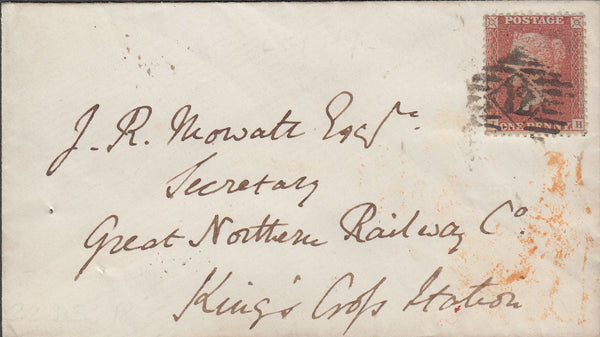 POSTAGE
12
ONE PENNY
H
J. R. Mowatt Esqre
Secretary
Great Northern Railway Co.
King's Crofs Station